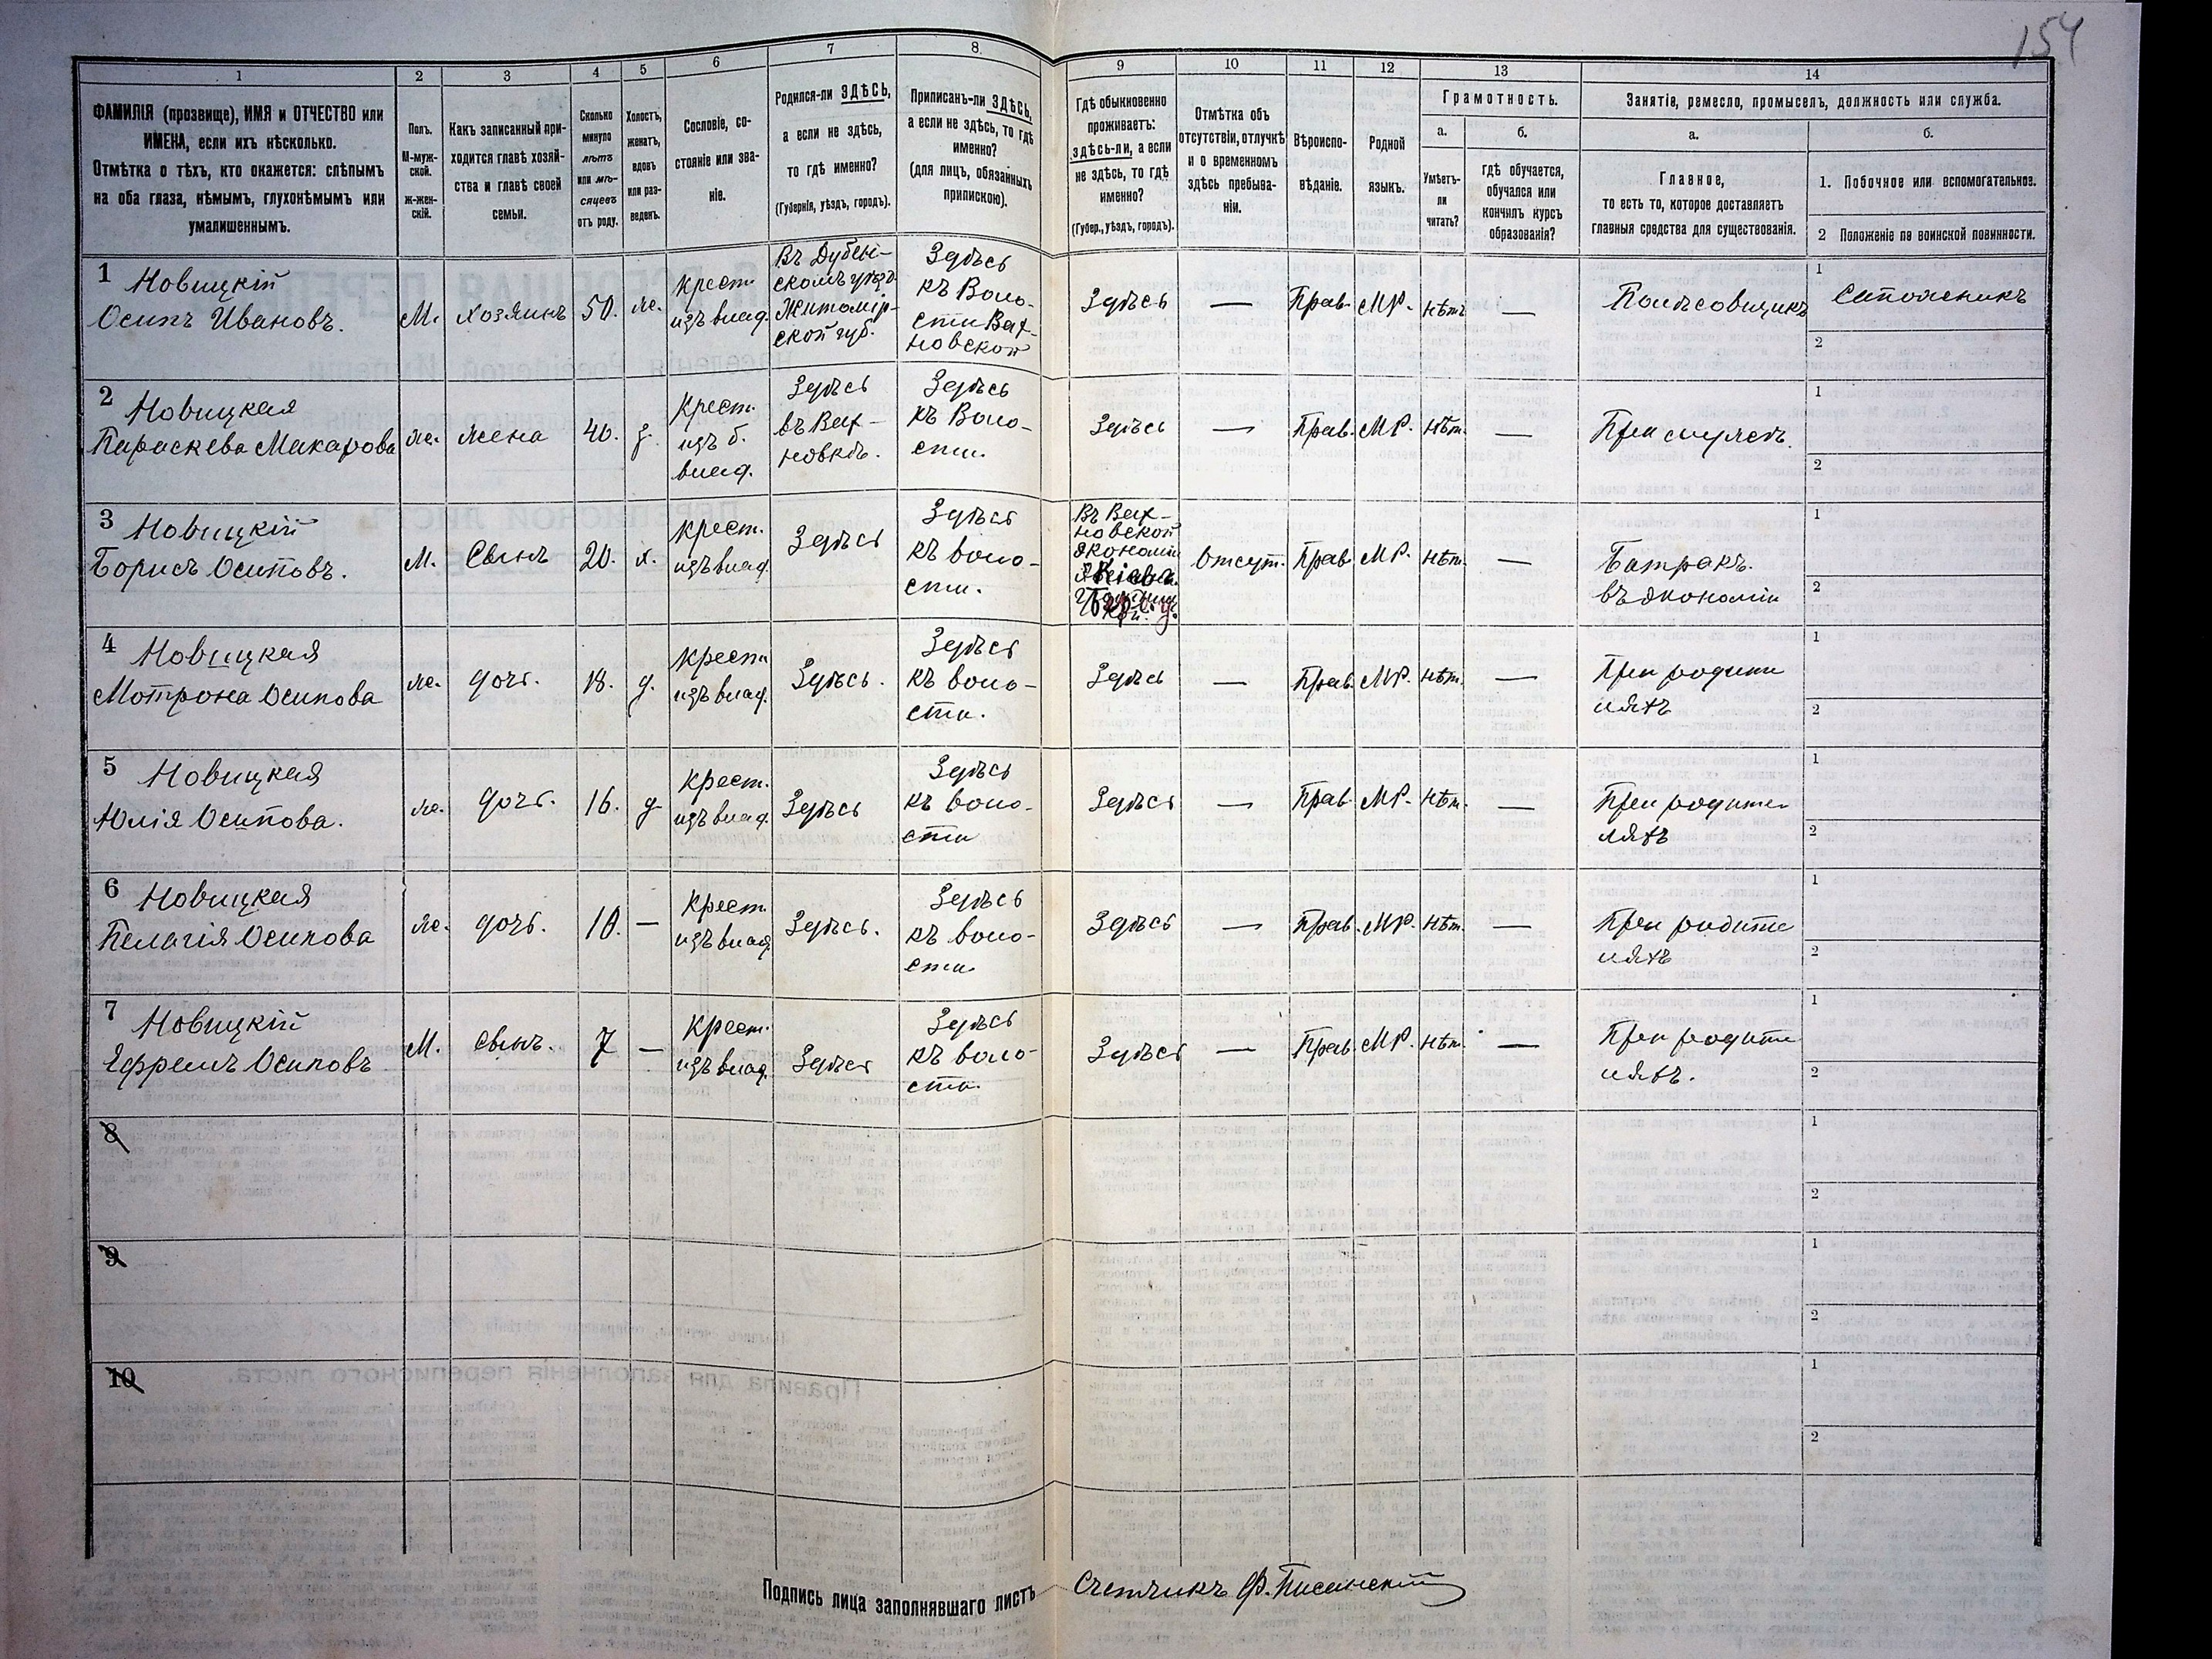 154
1
2
3
4
5
6
7
8
9
10
11
12
13
14
ФАМИЛІЯ (прозвище), ИМЯ и ОТЧЕСТВО или
ИМЕНА, если ихъ нѣсколько.
Отмѣтка о тѣхъ, кто окажется: слѣпымъ
на оба глаза, нѣмымъ, глухонѣмымъ или
умалишеннымъ.
Полъ.
М-муж-
ской.
ж-жен-
скій.
Какъ записанный при-
ходится главѣ хозяй-
ства и главѣ своей
семьи.
Сколько
минуло
лѣтъ
или мѣ-
сяцевъ
отъ роду.
Холостъ,
женатъ,
вдовъ
или раз-
веденъ.
Сословіе, со-
стояніе или зва-
ніе.
Родился-ли ЗДѢСЬ,
а если не здѣсь,
то гдѣ именно?
(Губернія, уѣздъ, городъ).
Приписанъ-ли ЗДѢСЬ,
а если не здѣсь, то гдѣ
именно?
(для лицъ, обязанныхъ
припискою).
Гдѣ обыкновенно
проживаетъ:
здѣсь-ли, а если
не здѣсь, то гдѣ
именно?
(Губер., уѣздъ, городъ).
Отмѣтка объ
отсутствіи, отлучкѣ
и о временномъ
здѣсь пребыва-
ніи.
Вѣроиспо-
вѣданіе.
Родной
языкъ.
Грамотность.
а.
Умѣетъ-
ли
читать?
б.
гдѣ обучается,
обучался или
кончилъ курсъ
образованія?
Занятіе, ремесло, промыселъ, должность или служба.
а.
Главное,
то есть то, которое доставляетъ
главныя средства для существованія.
б.
1. Побочное или вспомогательное.
2 Положеніе по воинской повинности.
1 Новицкій
Осипъ Ивановъ.
М.
Хозяинъ
50.
же.
Крест.
изъ влад.
Въ Дубен-
скомъ уѣз.
Житомір-
ской губ.
Здѣсь
къ Воло-
сти Вах-
новской
Здѣсь
—
Прав.
МР.
нѣтъ
—
Полѣсовщикъ
1
Сапожникъ
2
2 Новицкая
Параскева Макарова
же.
жена
40.
з.
Крест.
изъ б.
влад.
Здѣсь
въ Вах-
новкѣ.
Здѣсь
къ Воло-
сти.
Здѣсь
—
Прав.
МР.
нѣт.
—
При мужѣ.
1
2
3 Новицкій
Борисъ Осиповъ.
М.
Сынъ
20.
х.
Крест.
изъ влад.
Здѣсь
Здѣсь
къ воло-
сти.
Въ Вах-
новской
экономіи
Отсут.
Прав.
МР.
нѣт.
—
Батракъ.
въ экономіи
1
2
4 Новицкая
Мотрона Осипова
же.
дочь.
18.
д.
Крест.
изъ влад.
Здѣсь.
Здѣсь
къ воло-
сти.
Здѣсь
—
Прав.
МР.
нѣт.
—
При родите
ляхъ
1
2
5 Новицкая
Юлія Осипова.
же.
дочь.
16.
д
Крест.
изъ влад.
Здѣсь
Здѣсь
къ воло-
сти
Здѣсь
—
Прав.
МР.
нѣт.
—
При родите
ляхъ
1
2
6 Новицкая
Пелагія Осипова
же.
дочь.
10.
—
Крест.
изъ влад.
Здѣсь.
Здѣсь
къ воло-
сти
Здѣсь
—
Прав.
МР.
нѣт.
—
При родите
ляхъ
1
2
7 Новицкій
Ефремъ Осиповъ
М.
Сынъ.
7
—
Крест.
изъ влад.
Здѣсь
Здѣсь
къ воло-
сти.
Здѣсь
—
Прав.
МР.
нѣт.
—
При родите
ляхъ.
1
2
8
1
2
9
1
2
10
1
2
Подпись лица заполнявшаго листъ
Счетчикъ Ф. Писанскій